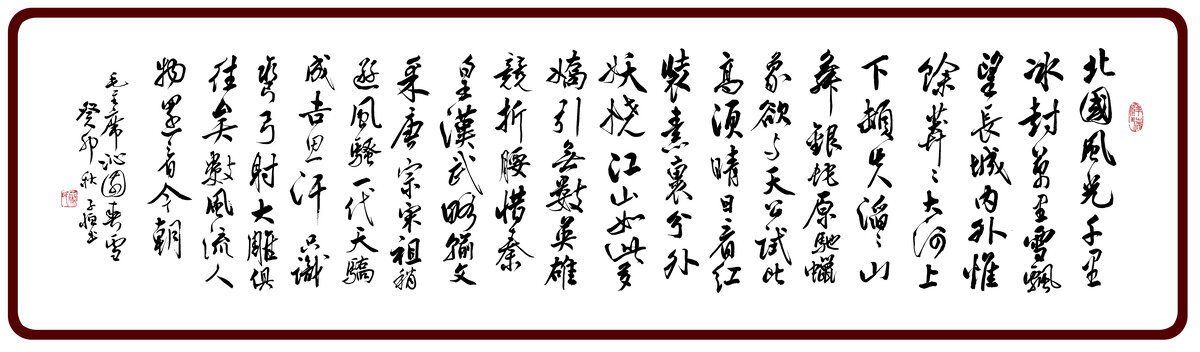 北國風光千里
冰封萬里雪飄
望長城内外惟
餘莽〻大河上
下頓失滔〻山
舞銀蛇原馳蠟
象欲与天公試比
高須晴日看紅
裝素裹分外
妖娆江山如此多
嬌引無數英雄
競折腰惜秦
皇漢武略輸文
采唐宗宋祖稍
遜風騷一代天驕
成吉思汗只識
彎弓射大雕俱
往矣數風流人
物還看今朝
毛主席沁園春雪
癸卯秋子恒书